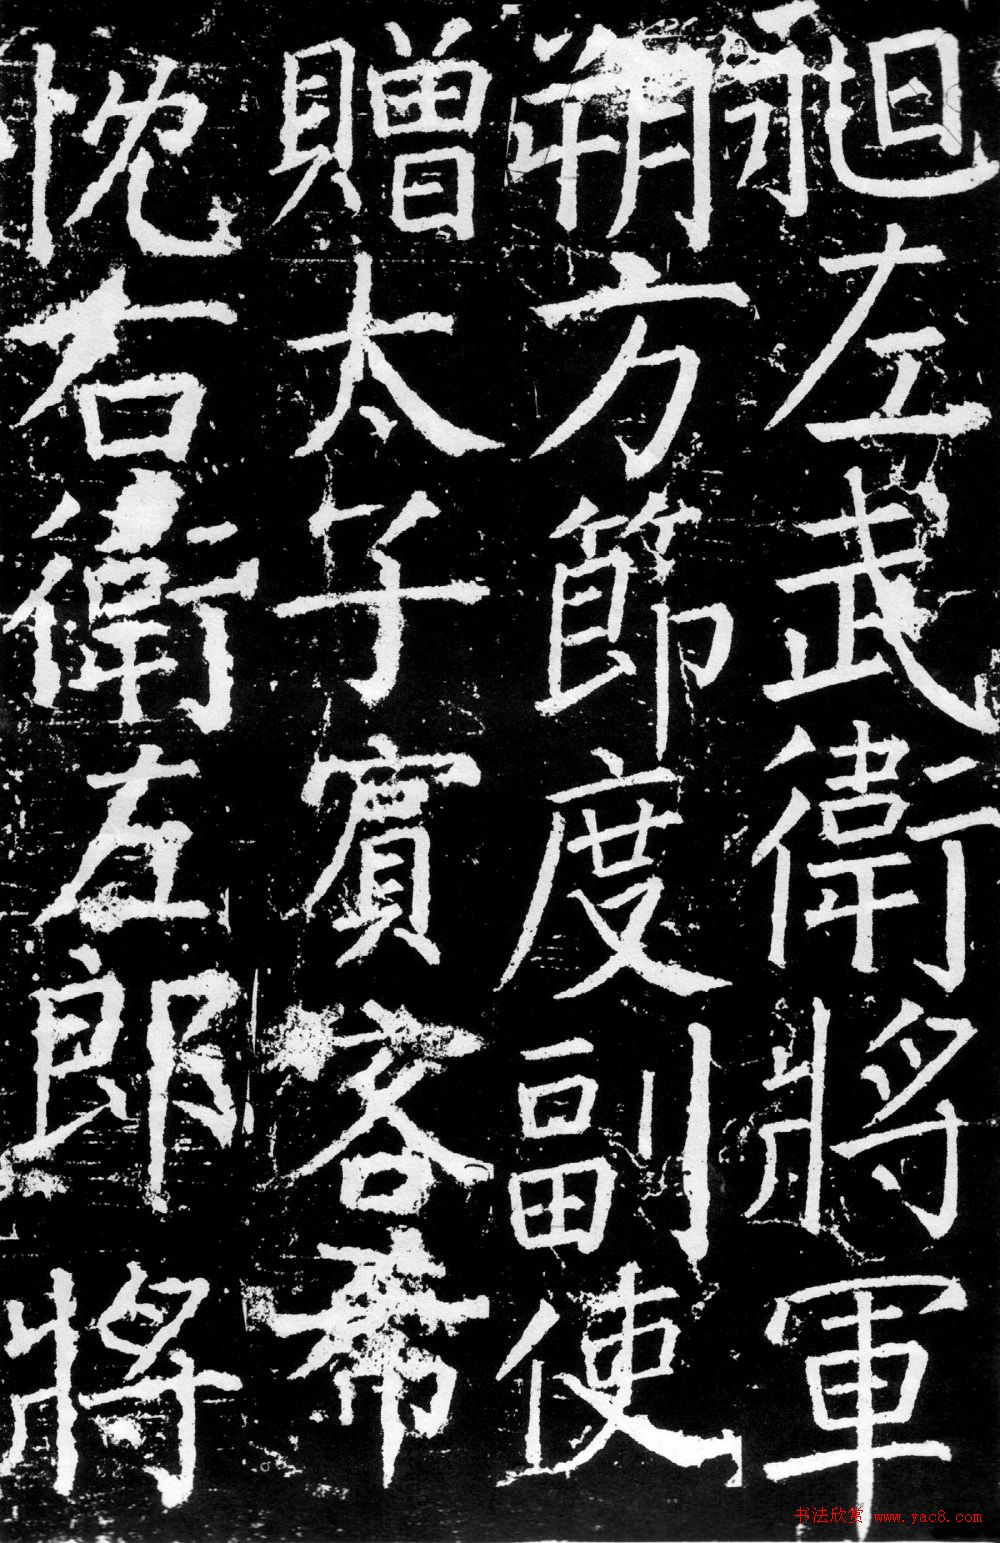 昶左武衛將軍
朔方節度副使
贈太子賓客希
忱右衛左郎將
书法欣赏 www.yac8.com